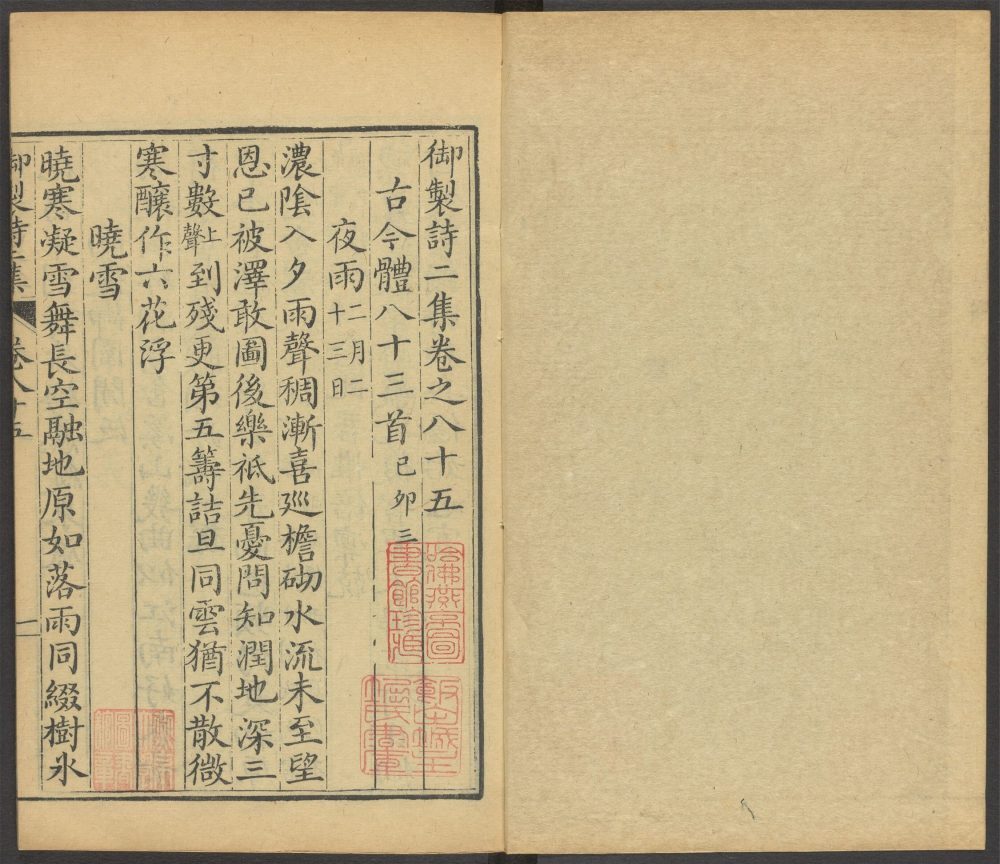 御製詩二集卷之八十五
古今體八十三首己卯三
夜雨二月二十三日
濃陰入夕雨聲稠漸喜廵檐砌水流未至望
恩已被澤敢圖後樂祗先憂問知潤地深三
寸數上聲到殘更第五籌詰旦同雲猶不散微
寒釀作六花浮
曉雪
曉寒凝雪舞長空融地原如落雨同綴樹氷
御製詩二集 卷八十五 一
哈佛燕京圖書館珍藏